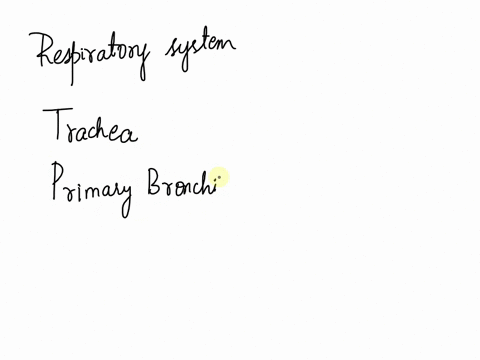 Respiratory system
Trachea
Primary Bronchi